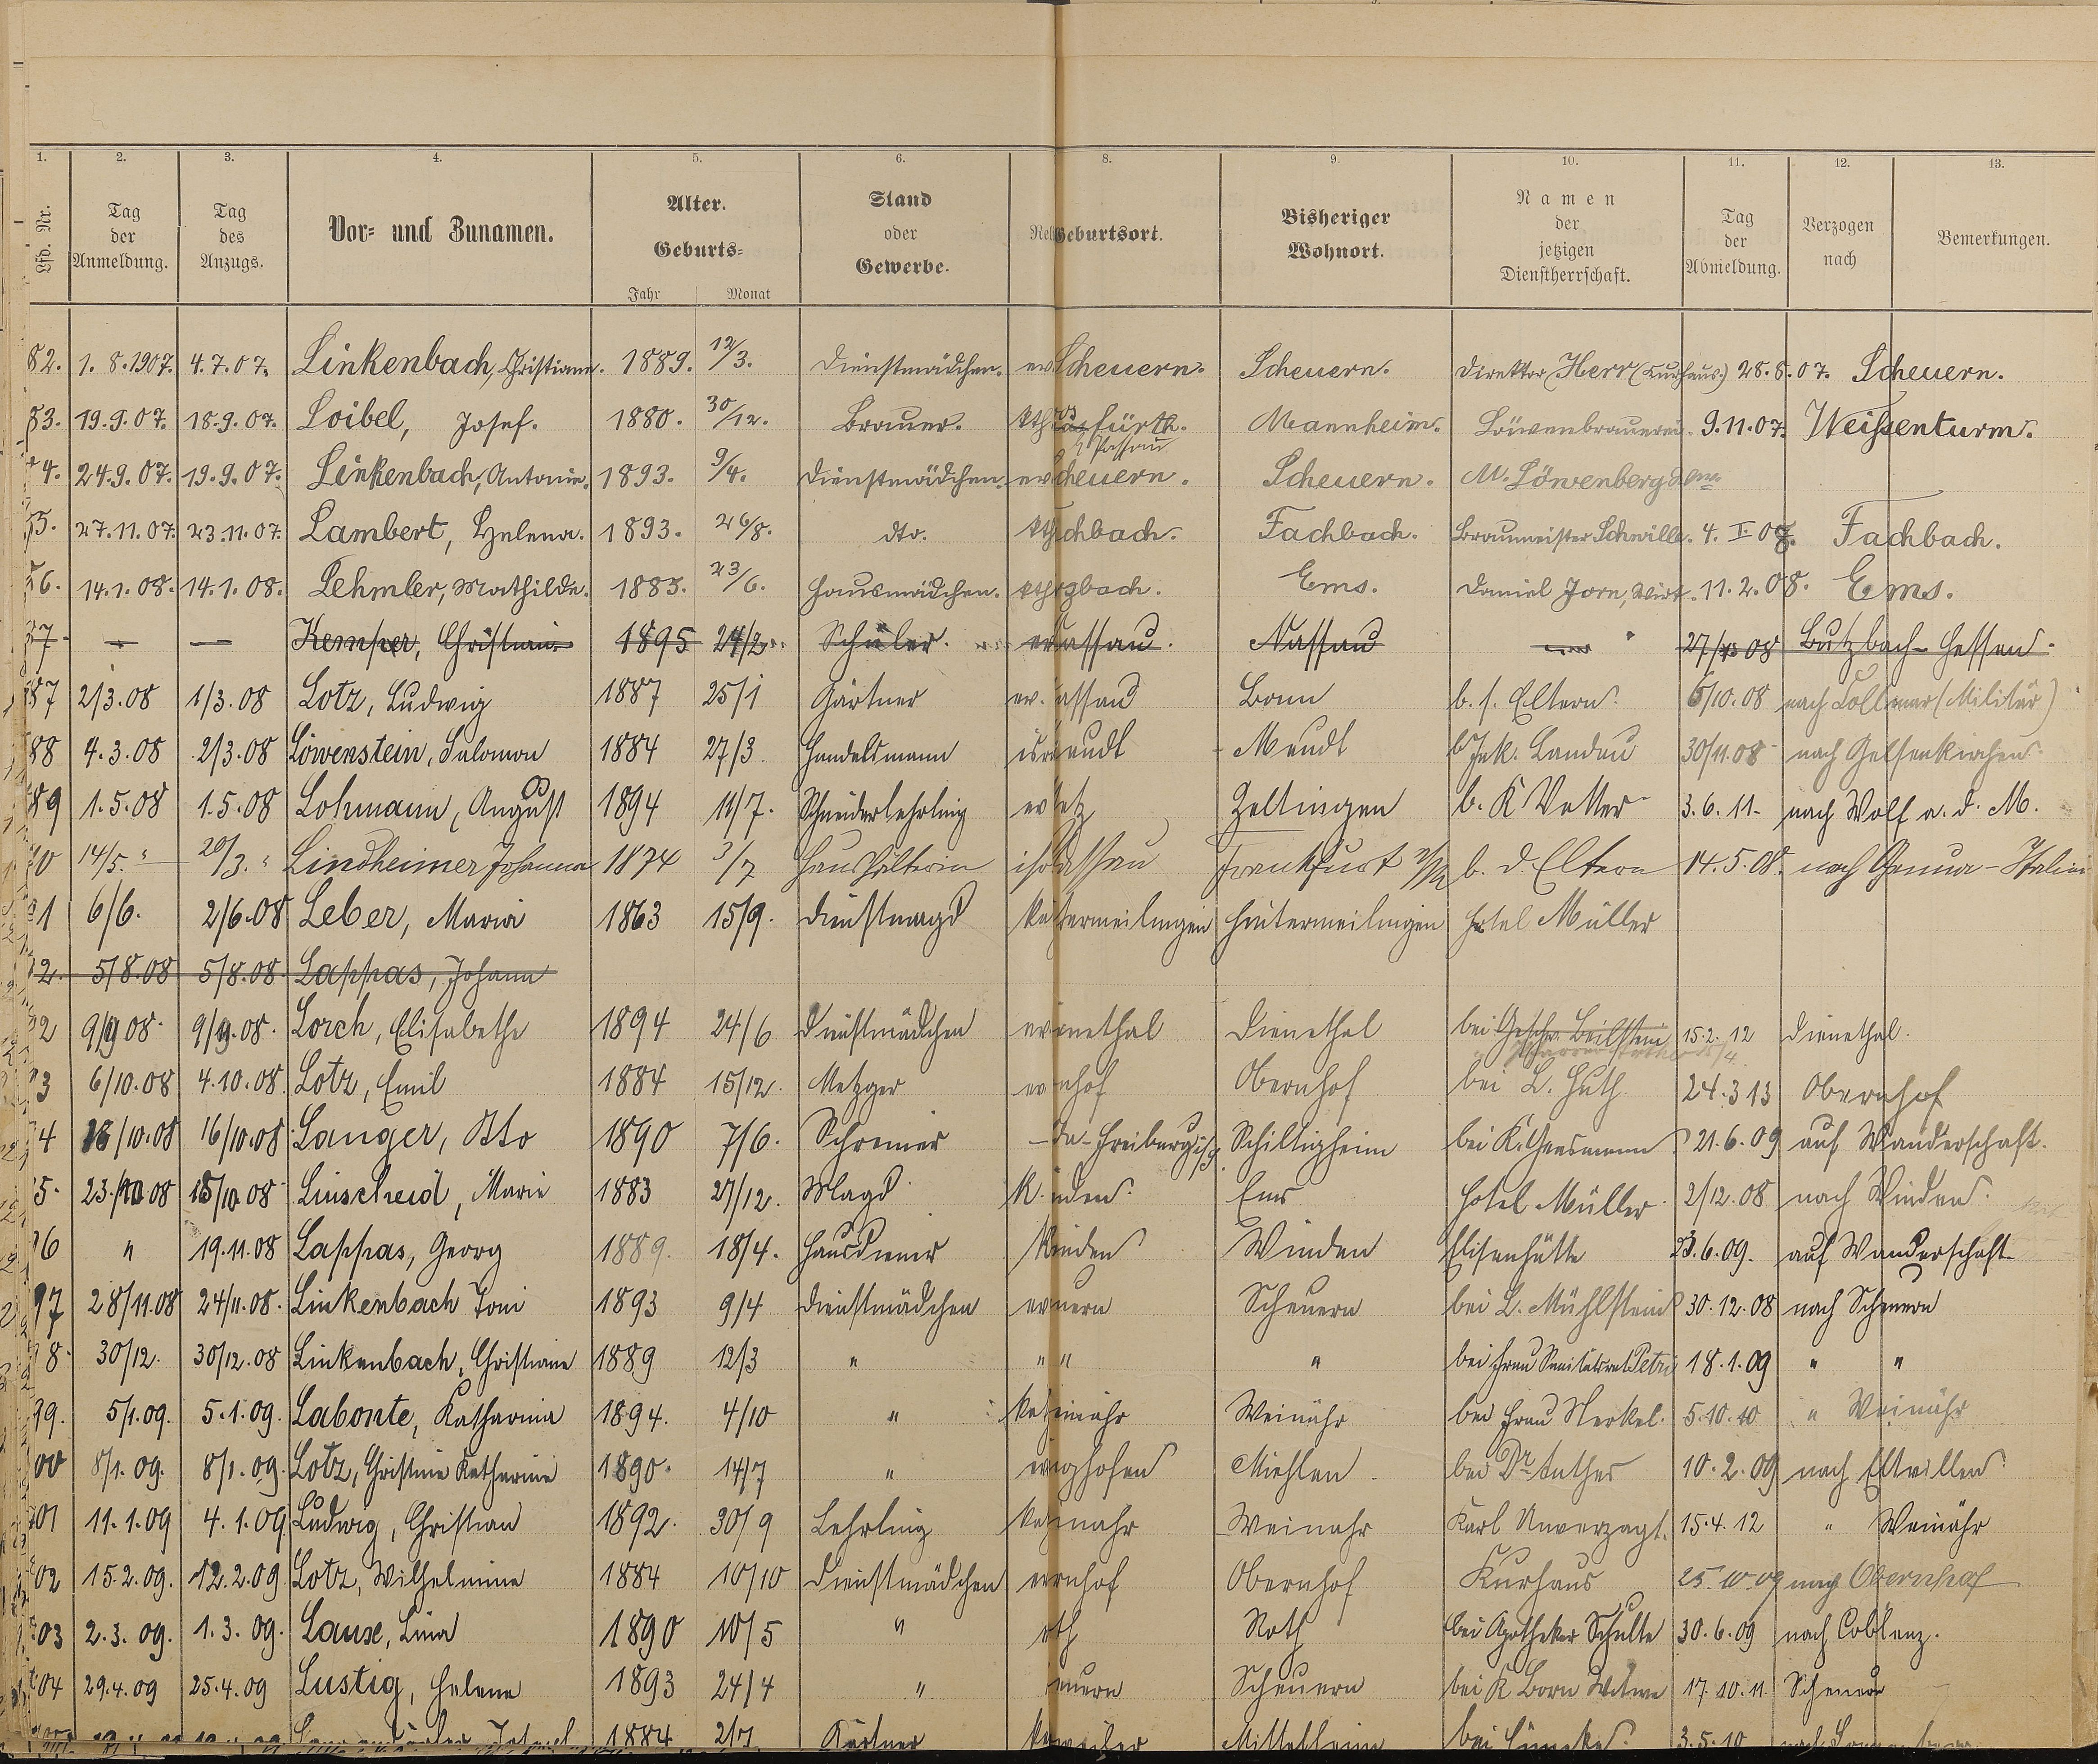 1. 2. 3. 4. 5. 6. 8. 9. 10. 11. 12. 13.
Lfd. Nr. Tag der Anmeldung. Tag des Anzugs. Vor- und Zunamen. Alter. Geburts- Jahr Monat Stand oder Gewerbe. Rel Geburtsort. Bisheriger Wohnort. Namen der jetzigen Dienstherrschaft. Tag der Abmeldung. Verzogen nach Bemerkungen.
82. 1.8.1907. 4.7.07. Linkenbach, Christiane. 1889. 12/3. Dienstmädchen. ev Scheuern. Scheuern. Direktor Herr (Kurhaus.) 28.8.07. Scheuern.
83. 19.9.07. 18.9.07. Loibel, Josef. 1880. 30/12. Brauer. kth fürth. Passau Mannheim. Löwenbrauerei. 9.11.07. Weißenturm.
4. 24.9.07. 19.9.07. Linkenbach, Antonie. 1893. 9/4. Dienstmädchen. ev cheuern. Scheuern. M. Löwenberg
5. 27.11.07. 23.11.07. Lambert, Helena. 1893. 26/8. dto. kth chbach. Fachbach. Braumeister Schwille. 4.I.08. Fachbach.
6. 14.1.08. 14.1.08. Lehmler, Mathilde. 1883. 23/6. Hausmädchen. kth gbach. Ems. Daniel Jorn, Wirt. 11.2.08. Ems.
87 — — Kemper, Christian. 1895 24/2 Schüler. ev assau. Nassau 27/ 08 Butzbach-Hessen.
87 2/3.08 1/3.08 Lotz, Ludwig 1887 25/1 Gärtner ev. assau Bonn b. s. Eltern. 6/10.08 nach Collmar (Militär)
88 4.3.08 2/3.08 Löwenstein, Salomon 1884 27/3. Handelsmann isr eudt Meudt b Jak. Landau 30/11.08 nach Gelsenkirchen
89 1.5.08 1.5.08 Lohmann, August 1894 11/7. Schneiderlehrling ev etz Zeltingen b. K Vetter 3.6.11. nach Wolf a. d. M.
90 14/5. " 20/3. " Lindheimer Johanna 1874 3/7 Haushälterin isr assau Frankfurt a/M b. d. Eltern 14.5.08. nach Genua-Italien
91 6/6. 2/6.08 Leber, Maria 1863 15/9. Dienstmagd ka termeilingen Hintermeilingen Hotel Müller
2. 5/8.08 5/8.08. Lappas, Johann
92 9/9 08. 9/9.08. Lorch, Elisabethe 1894 24/6 Dienstmädchen ev nethal Dienethal bei Geschw. Beilstein 15.2.12 Dienethal.
93 6/10.08 4.10.08. Lotz, Emil 1884 15/12. Metzger ev nhof Obernhof bei L. Huth 24.3 13 Obernhof
94 18/10.08 16/10.08. Langer, Otto 1890 7/6. Schreiner Freiburg i/S. Schiltigheim bei K. Gensmann 21.6.09 auf Wanderschaft.
95. 23./10 08 15/10.08 Linscheid, Marie 1883 27/12. Magd K. inden. Ems Hotel Müller 2/12.08 nach Winden.
96 " 19.11.08 Lappas, Georg 1889. 18/4. Hausdiener K inden Winden Elisenhütte 23.6.09. auf Wanderschaft
97 28/11.08 24/11.08. Linkenbach Toni 1893 9/4 Dienstmädchen ev uern Scheuern bei L. Mühlstein 30.12.08 nach Scheuern
98 30/12. 30/12.08 Linkenbach, Christiane 1889 12/3 " " " " bei Frau Sanitätsrat Petri 18.1.09 " "
99. 5/1.09. 5.1.09. Labonte, Katharina 1894. 4/10 " ka einähr Weinähr bei Frau Merkel. 5.10.10 " Weinähr
00 8/1.09. 8/1.09. Lotz, Christine Katharine 1890. 14/7 " ev ighofen Miehlen bei Dr. Anthes 10.2.09 nach Eltvillen
01 11.1.09 4.1.09 Ludwig, Christian 1892. 30/9 Lehrling ka inahr Weinahr Karl Unverzagt. 15.4.12 " Weinähr
02 15.2.09. 12.2.09 Lotz, Wilhelmine 1884 10/10 Dienstmädchen ev rnhof Obernhof Kurhaus 25.10.09 nach Obernhof
03 2.3.09. 1.3.09. Lause, Lina 1890 10/5 " oth Roth bei Apotheker Schulte 30.6.09 nach Coblenz.
04 29.4.09 25.4.09 Lustig, Helene 1893 24/4 " euern Scheuern bei K Born Witwe 17.10.11 Scheuern
1884 Gärtner Mittelheim bei 3.5.10